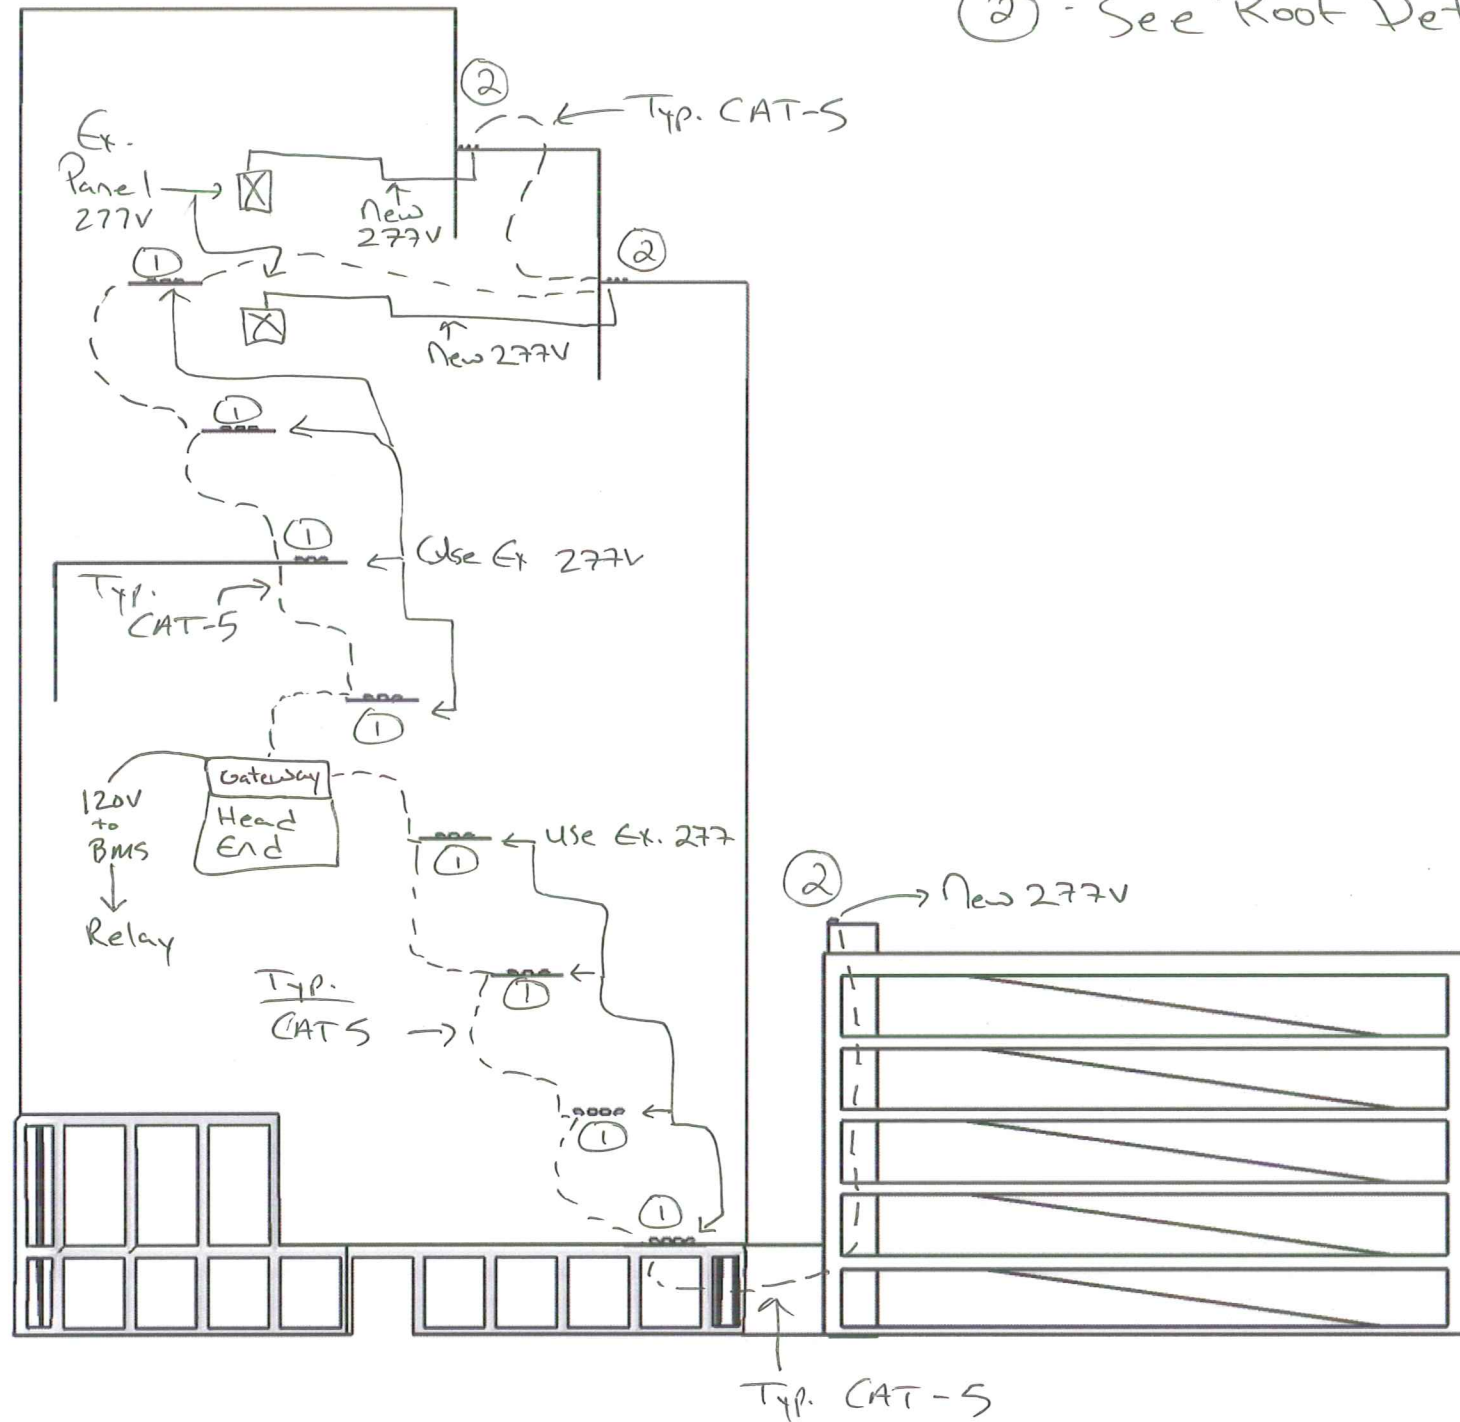 ② - See Roof Det
②
Typ. CAT-5
Ex.
Panel
277V
New
277V
①
②
New 277V
①
①
Use Ex 277V
Typ.
CAT-5
①
Gateway
Head
End
120V
to
BMS
Relay
Use Ex. 277
①
②
New 277V
①
Typ.
CAT 5
①
①
Typ. CAT-5